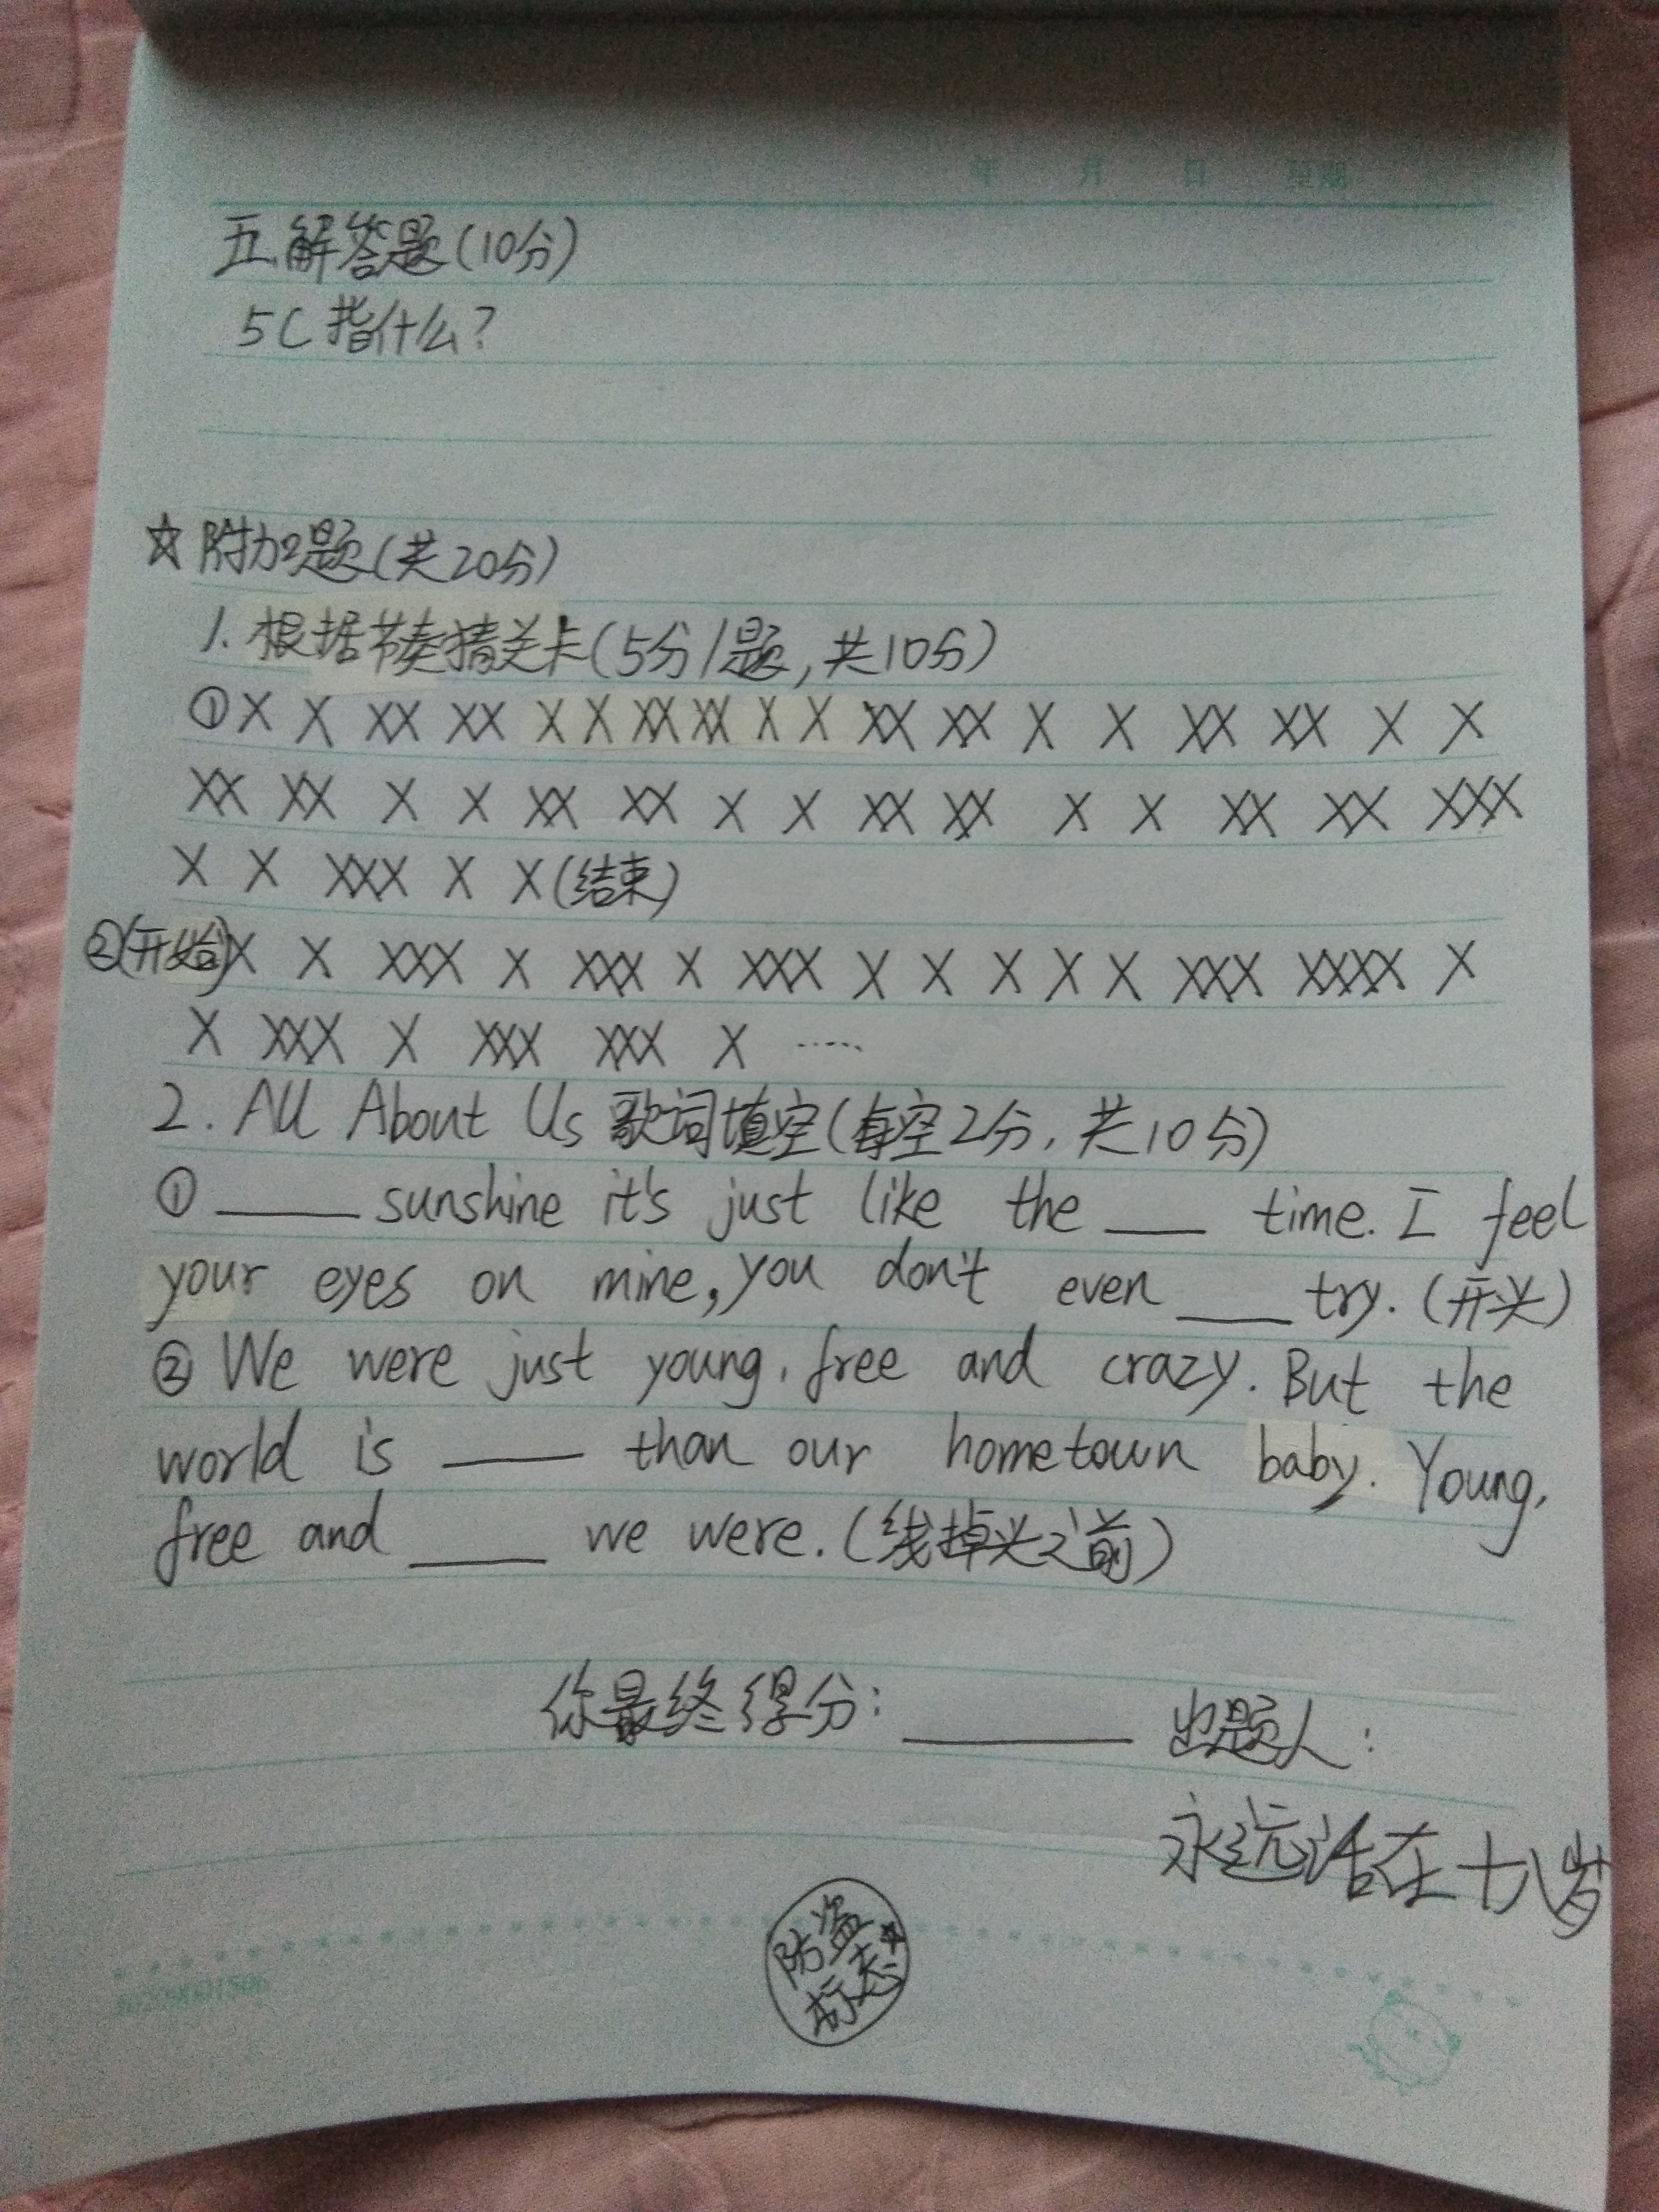 年 月 日 星期
五.解答题(10分)
5C指什么?
☆附加题(共20分)
1.根据节奏猜关卡(5分/题,共10分)
①X X XX XX X X XX XX X X XX XX X X XX XX X X
XX XX X X XX XX X X XX XX X X XX XX XXX
X X XXX X X(结束)
②(开始)X X XXX X XXX X XXX X X X X X XXX XXXX X
X XXX X XXX XXX X ……
2. All About Us 歌词填空(每空2分,共10分)
① ____ sunshine it's just like the ____ time. I feel
your eyes on mine, you don't even ____ try. (开头)
② We were just young, free and crazy. But the
world is ____ than our hometown baby. Young,
free and ____ we were. (线掉头之前)
你最终得分: ____ 出题人:
永远活在十八岁
防盗
标志☆